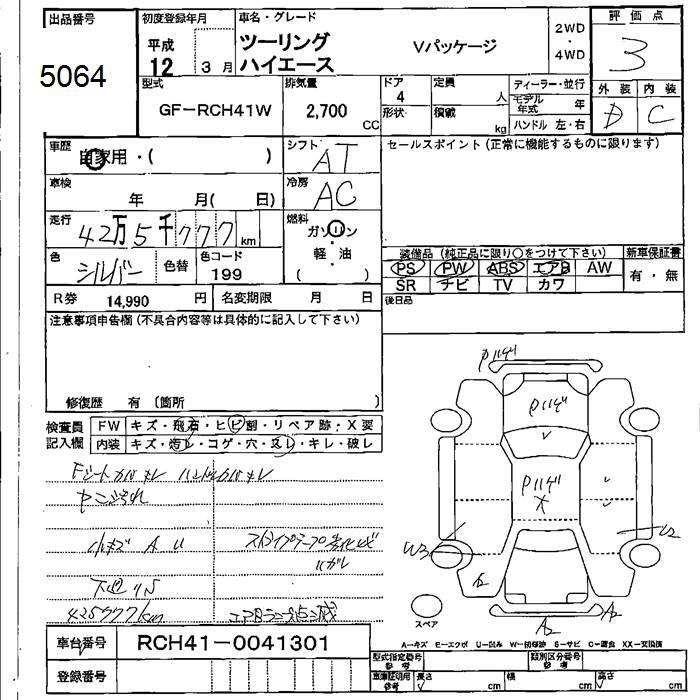 出品番号
5064
初度登録年月
平成
12 3 月
車名・グレード
ツーリング
ハイエース
Vパッケージ
2WD
・
4WD
評価点
3
外装 内装
D C
型式
GF-RCH41W
排気量
2,700
CC
ドア
4
形状
定員
人
積載
kg
ディーラー・並行
モデル年式 年
ハンドル 左・右
車歴
自家用・( )
シフト
AT
セールスポイント(正常に機能するものに限ります)
車検
年 月( 日)
冷房
AC
走行
42万5千777 km
燃料
ガソリン
軽・油
( ・ )
色
シルバー
色替
色コード
199
R券 14,990 円
名変期限 月 日
装備品(純正品に限り○をつけて下さい)
PS PW ABS エアB AW
SR ナビ TV カワ
新車保証書
有・無
後日品
注意事項申告欄(不具合内容等は具体的に記入して下さい)
修復歴 有〔箇所 〕
検査員
記入欄
FW キズ・飛石・ヒビ割・リペア跡・X要
内装 キズ・汚レ・コゲ・穴・スレ・キレ・破レ
Fシートカバキレ ハンドルカバキレ
小キズ A U
ストライプテープ劣化
ハガレ
下廻りS
425777km
エアBランプ点滅
Pハゲ
Pハゲ
Pハゲ
X
W3
U2
A2
A2
スペア
A-キズ E-エクボ U-凹ミ W-補修跡 S-サビ C-腐蝕 XX-交換済
車台番号
RCH41-0041301
登録番号
型式指定番号
参考
類別区分番号
参考
車庫証明用
参考
長さ cm
幅 cm
高さ cm